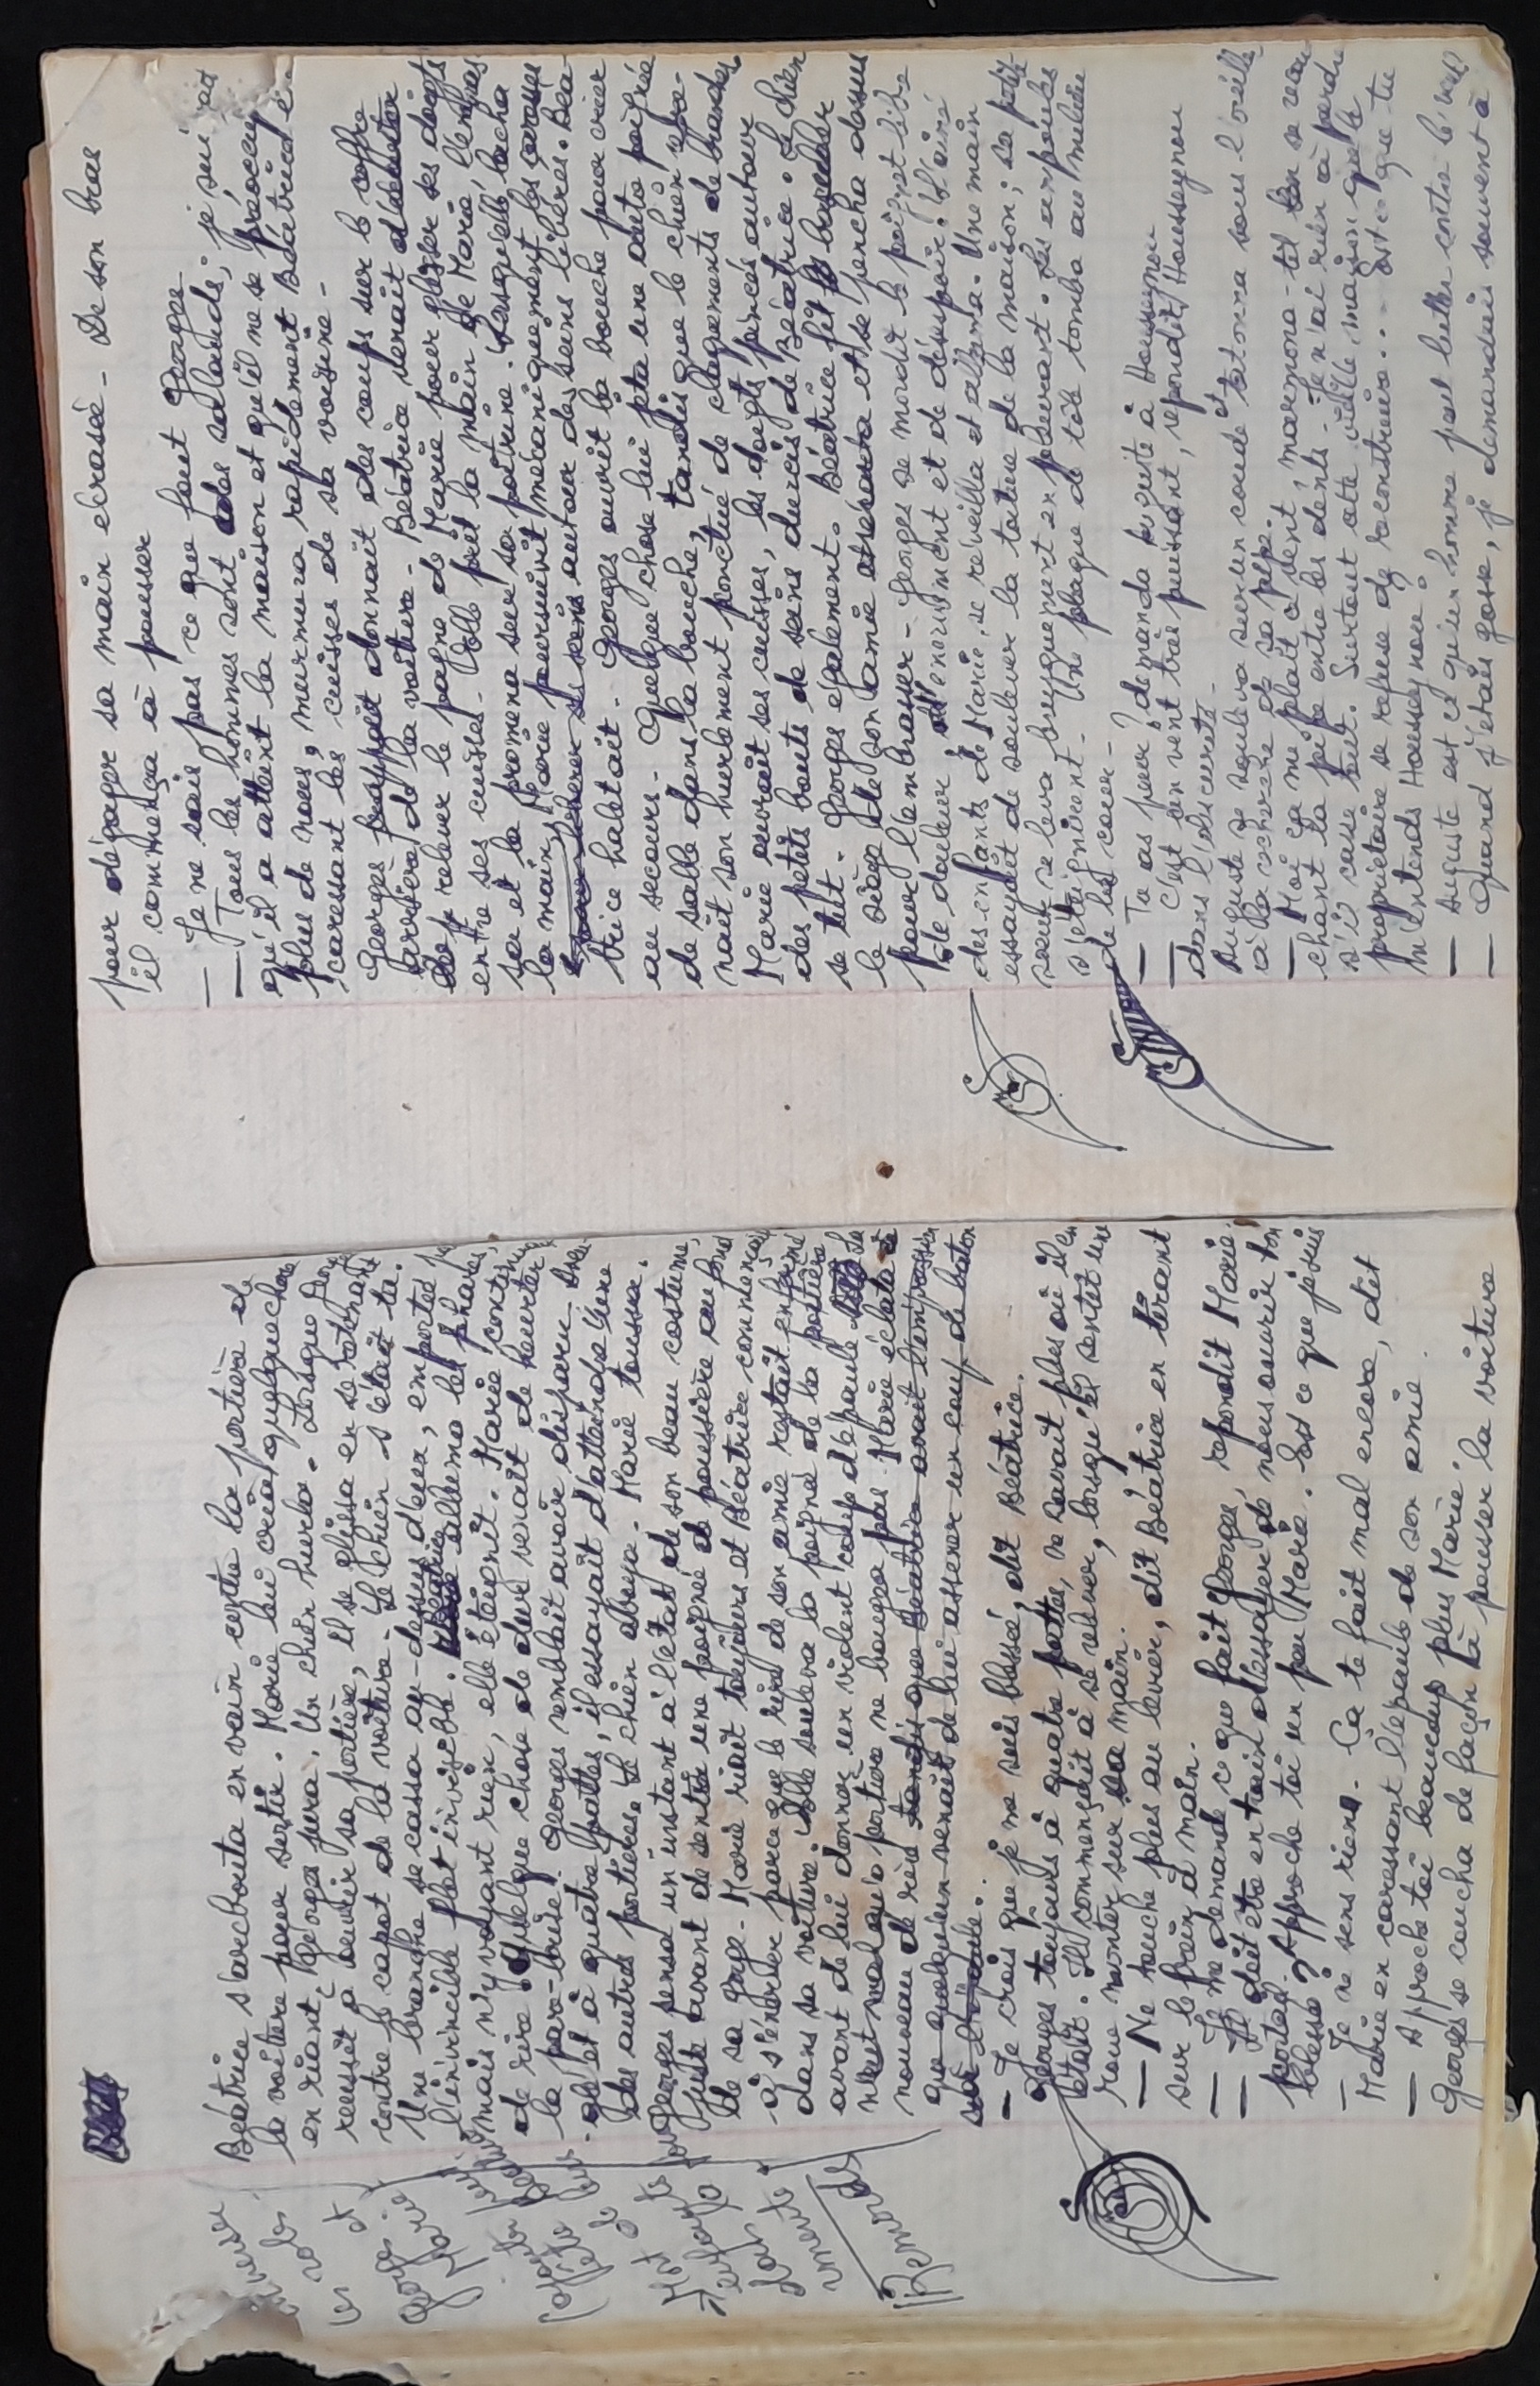 Béatrice s'arcbouta en vain contre la portière de
la voiture pour sortir. Marie lui cria quelque chose
en riant. Georges jura. Un chien hurla. Lorsque
reussit à ouvrir sa portière, il se glissa en se
contre le capot de la voiture. Le chien s'était tu.
Une branche se cassa au-dessus d'eux, emportée
l'invincible flot invisible. Béatrice alluma les phares,
mais n'y voyant rien, elle éteignit. Marie
de rire. Quelque chose de dur venait de heurter
le pare-brise. Georges semblait avoir disparu.
et à quatre pattes, il essayait d'atteindre l'une
des autres portières. Le chien aboya. Marie toussa.
Georges pensa un instant à l'état de son beau costume,
juste avant de sentir une poignée de poussière au fond
de sa gorge. Marie riait toujours et Béatrice commença
à s'énerver parce que le rire de son amie restait enfermé
dans sa voiture. Elle souleva la poigné de la portière
avant de lui donner un violent coup d'épaule. La
portière ne bougea pas. Marie éclata
nouveau de rire tandis que Béatrice avait l'impression
que quelqu'un venait de lui assener un coup de bâton
sur l'épaule.
— Je crois que je me suis blessé, dit Béatrice.
Georges toujours à quatre pattes, ne savait plus où il en
était. Il commençait à se relever, lorsqu'il sentit une
roue monter sur sa main.
— Ne touche plus au levier, dit Béatrice en tirant
sur le frein à main.
— Je me demande ce que fait Georges, repondit Marie.
— Il doit être entrain d'essayer de nous ouvrir ton
blessé? Approche toi un peu Marie. Est ce que je suis
— Je ne sens rien. Ça te fait mal encore, dit
Marie en caressant l'épaule de son amie.
— Approche toi beaucoup plus Marie.
Georges se coucha de façon à pousser la voiture
les
et
Georges
Marie
de
Remords
pour dégager sa main écrasé - De son bras
il commença à pousser
— Je ne sais pas ce que fout Georges
— Tous les hommes sont des salauds, je suis
qu'il a atteint la maison et qu'il ne se préoccupe
plus de nous, murmura rapidement Béatrice en
caressant les cuisses de sa voisine -
Georges donnait des coups sur le coffre
arrière de la voiture - Béatrice venait
relever le pagne de Marie pour glisser ses doigts
entre ses cuisses - Elle prit la main de Marie,
sa et la promena sur sa poitrine. Lorsqu'elle lacha
la main, Marie poursuivit mécaniquement les caresses
autour des seins libérés. Béa-
trice haletait. Georges ouvrit la bouche pour crier
au secours - Quelque chose lui jeta une autre poignée
de sable dans la bouche, tandis que le chien repre-
nait son hurlement ponctué de claquements de branches
Marie ouvrait ses cuisses, les doigts pincés autour
des petits bouts de seins durcis de Béatrice. Le chien
se tut. Georges également. Béatrice fit basculer
le siège de son amie et se pencha dessus
pour l'embrasser - Georges se mordit le poignet libre
de douleur, d'énervement et de désespoir. L'ainé
des enfants de Marie, se réveilla et alluma. Une main
essayait de soulever la toiture de la maison; sa petite
soeur se leva brusquement en pleurant. Les ampoules
s'éteignirent - Une plaque de tôle tomba au milieu
de la cour -
— Tu as peur? demanda Auguste à Housseynou
— C'est un vent très puissant, repondit Housseynou
dans l'obscurité -
Auguste se souleva sur un coude et tatonna sous l'oreiller
à la recherche de sa pipe.
— Moi ça me plait à dent, marmona-t-il en se
chant la pipe entre les dents - Je n'ai rien à perdre
s'il casse tout. Surtout cette vieille maison que le
propriétaire se refuse de reconstruire... Est-ce que tu
m'entends Housseynou?
— Auguste est ce qu'un homme peut lutter contre le vent
— Quand j'étais gosse, je demandais souvent à